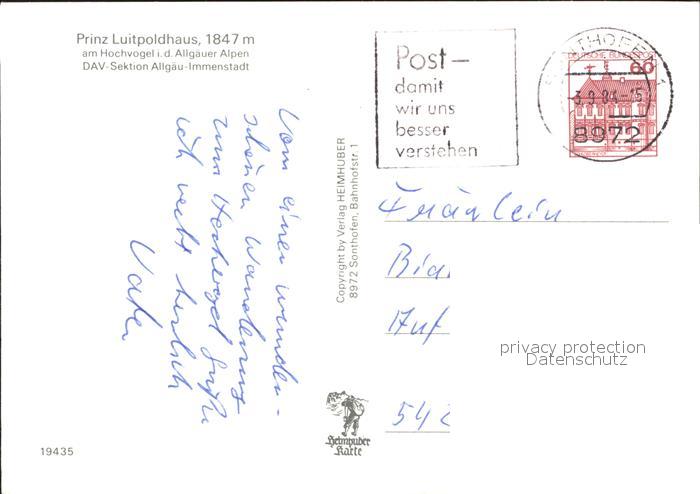 Prinz Luitpoldhaus, 1847 m
am Hochvogel i.d. Allgäuer Alpen
DAV-Sektion Allgäu-Immenstadt
Vom einer wunder-
schönen Wanderung
zum Hochvogel grüße
ich recht herzlich
Vater
19435
Copyright by Verlag HEIMHUBER
8972 Sonthofen, Bahnhofstr. 1
Heimhuber
Karte
Post –
damit
wir uns
besser
verstehen
SONTHOFEN 1
-3.9.84-15
8972
DEUTSCHE BUNDESPOST
60
Fräulein
Bia
Huf
542
privacy protection
Datenschutz